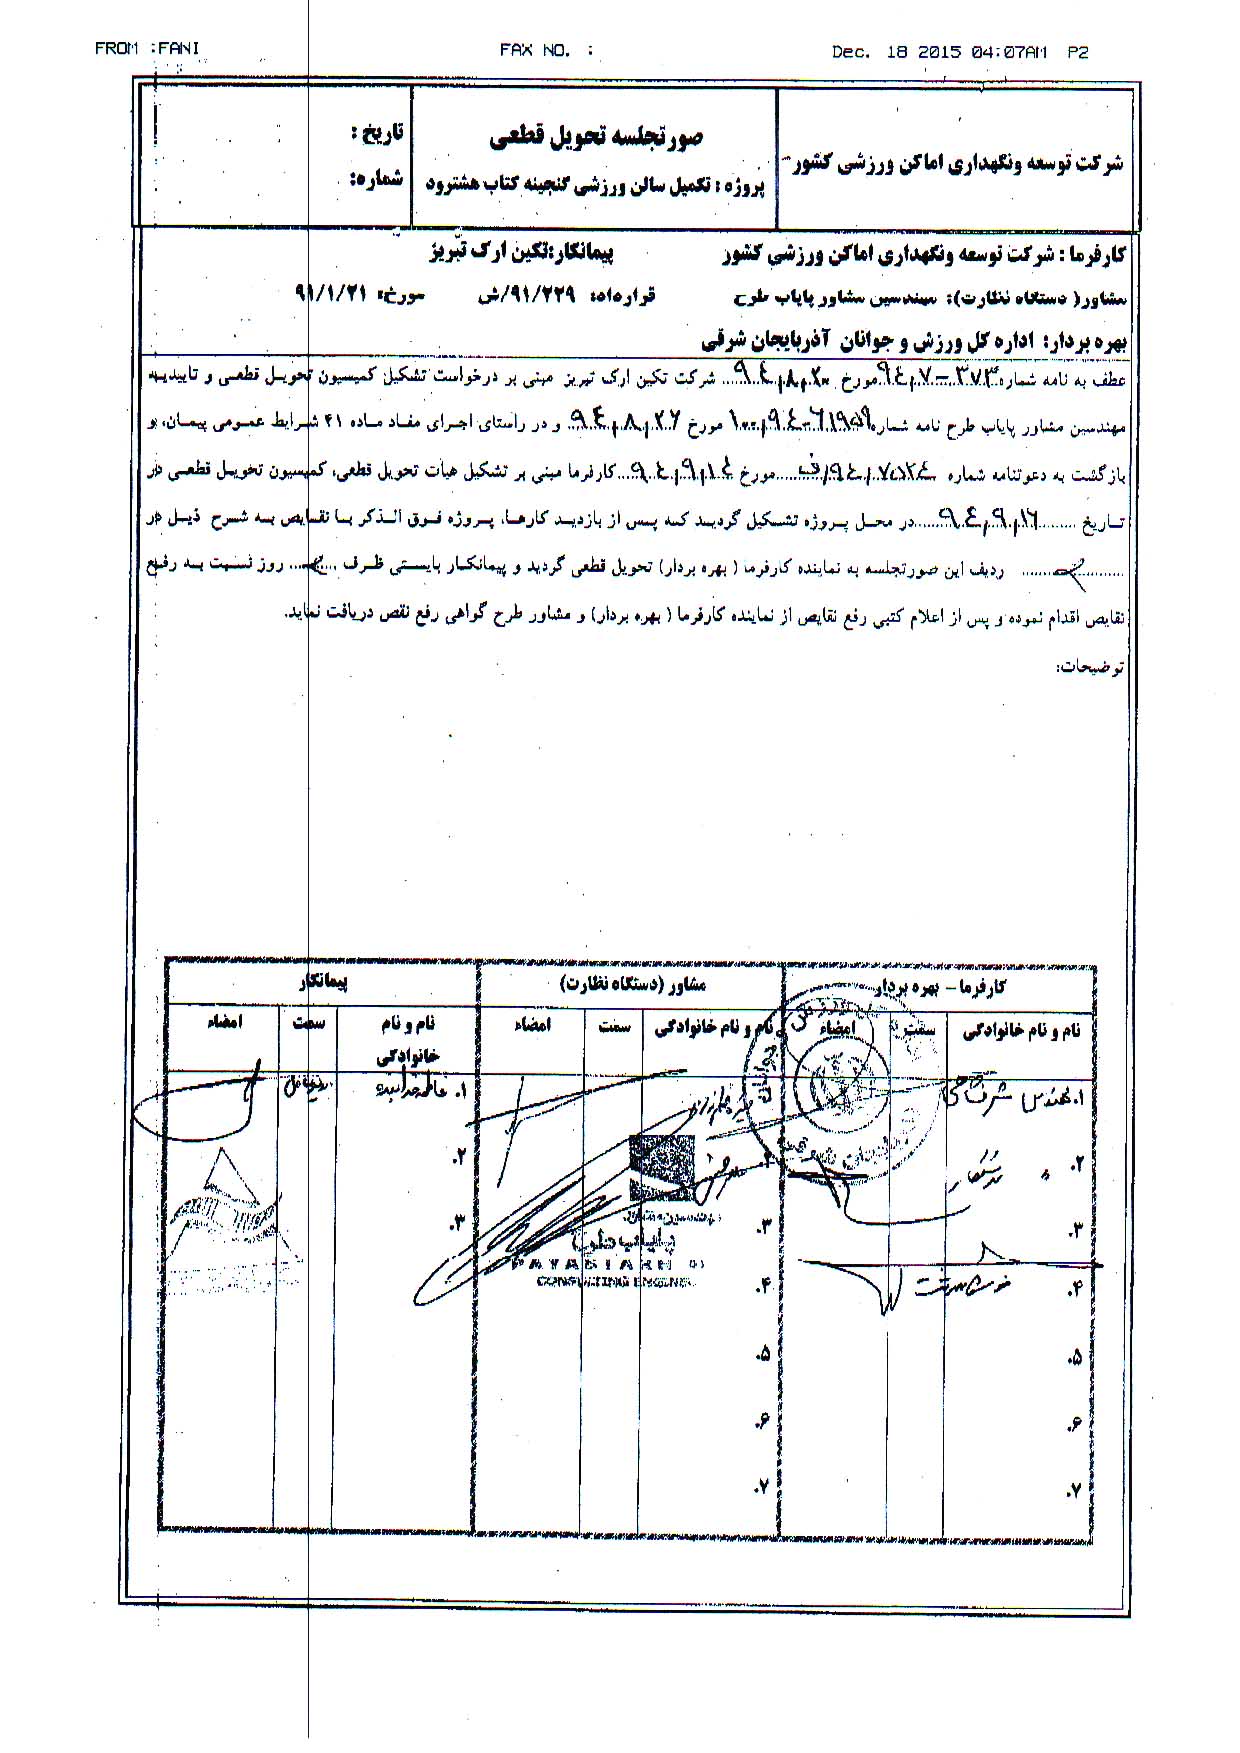 FROM :FANI FAX NO. : Dec. 18 2015 04:07AM P2
شرکت توسعه ونگهداری اماکن ورزشی کشور
صورتجلسه تحویل قطعی
پروژه : تکمیل سالن ورزشی گنجینه کتاب هشترود
تاریخ :
شماره:
کارفرما : شرکت توسعه ونگهداری اماکن ورزشی کشور پیمانکار:تکین ارک تبریز
مشاور( دستگاه نظارت): مهندسین مشاور پایاب طرح قرارداد: ۹۱/۲۲۹/ش مورخ: ۹۱/۱/۲۱
بهره بردار: اداره کل ورزش و جوانان آذربایجان شرقی
عطف به نامه شماره ۹۴/۷-۳۷۳ مورخ ۹۴/۸/۲۰ شرکت تکین ارک تبریز مبنی بر درخواست تشکیل کمیسیون تحویل قطعی و تاییدیه
مهندسین مشاور پایاب طرح نامه شماره مورخ ۹۴/۸/۲۶ و در راستای اجرای مفاد ماده ۴۱ شرایط عمومی پیمان، و
بازگشت به دعوتنامه شماره مورخ ۹۴/۹/۱۴ کارفرما مبنی بر تشکیل هیأت تحویل قطعی، کمیسیون تحویل قطعی در
تاریخ ۹۴/۹/۱۶ در محل پروژه تشکیل گردید که پس از بازدید کارها، پروژه فوق الذکر با نقایص به شرح ذیل در
ردیف این صورتجلسه به نماینده کارفرما ( بهره بردار) تحویل قطعی گردید و پیمانکار بایستی ظرف روز نسبت به رفع
نقایص اقدام نموده و پس از اعلام کتبی رفع نقایص از نماینده کارفرما ( بهره بردار) و مشاور طرح گواهی رفع نقص دریافت نماید.
توضیحات:
کارفرما – بهره بردار مشاور (دستگاه نظارت) پیمانکار
نام و نام خانوادگی سمت امضاء نام و نام خانوادگی سمت امضاء نام و نام خانوادگی سمت امضاء
۱. مهندس ۱. مدیرعامل
۲. ۲. ۲.
۳. ۳. ۳.
۴. ۴.
۵. ۵.
۶. ۶.
۷. ۷.
پایاب طرح
CONSULTING ENGINE